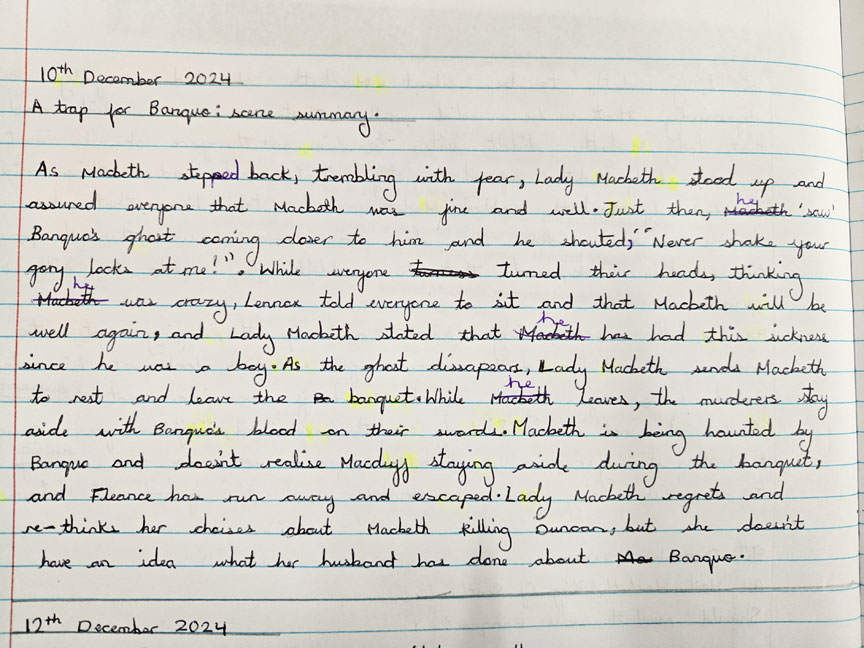 10th December 2024
A trap for Banquo: scene summary.
As Macbeth stepped back, trembling with fear, Lady Macbeth stood up and
assured everyone that Macbeth was fine and well. Just then, he 'saw'
Banquo's ghost coming closer to him and he shouted; "Never shake your
gory locks at me!". While everyone turned their heads, thinking
he was crazy, Lennox told everyone to sit and that Macbeth will be
well again, and Lady Macbeth stated that he has had this sickness
since he was a boy. As the ghost dissapears, Lady Macbeth sends Macbeth
to rest and leave the banquet. While he leaves, the murderers stay
aside with Banquo's blood on their swords. Macbeth is being haunted by
Banquo and doesn't realise Macduff staying aside during the banquet,
and Fleance has run away and escaped. Lady Macbeth regrets and
re-thinks her choises about Macbeth killing Duncan, but she doesn't
have an idea what her husband has done about Banquo.
12th December 2024